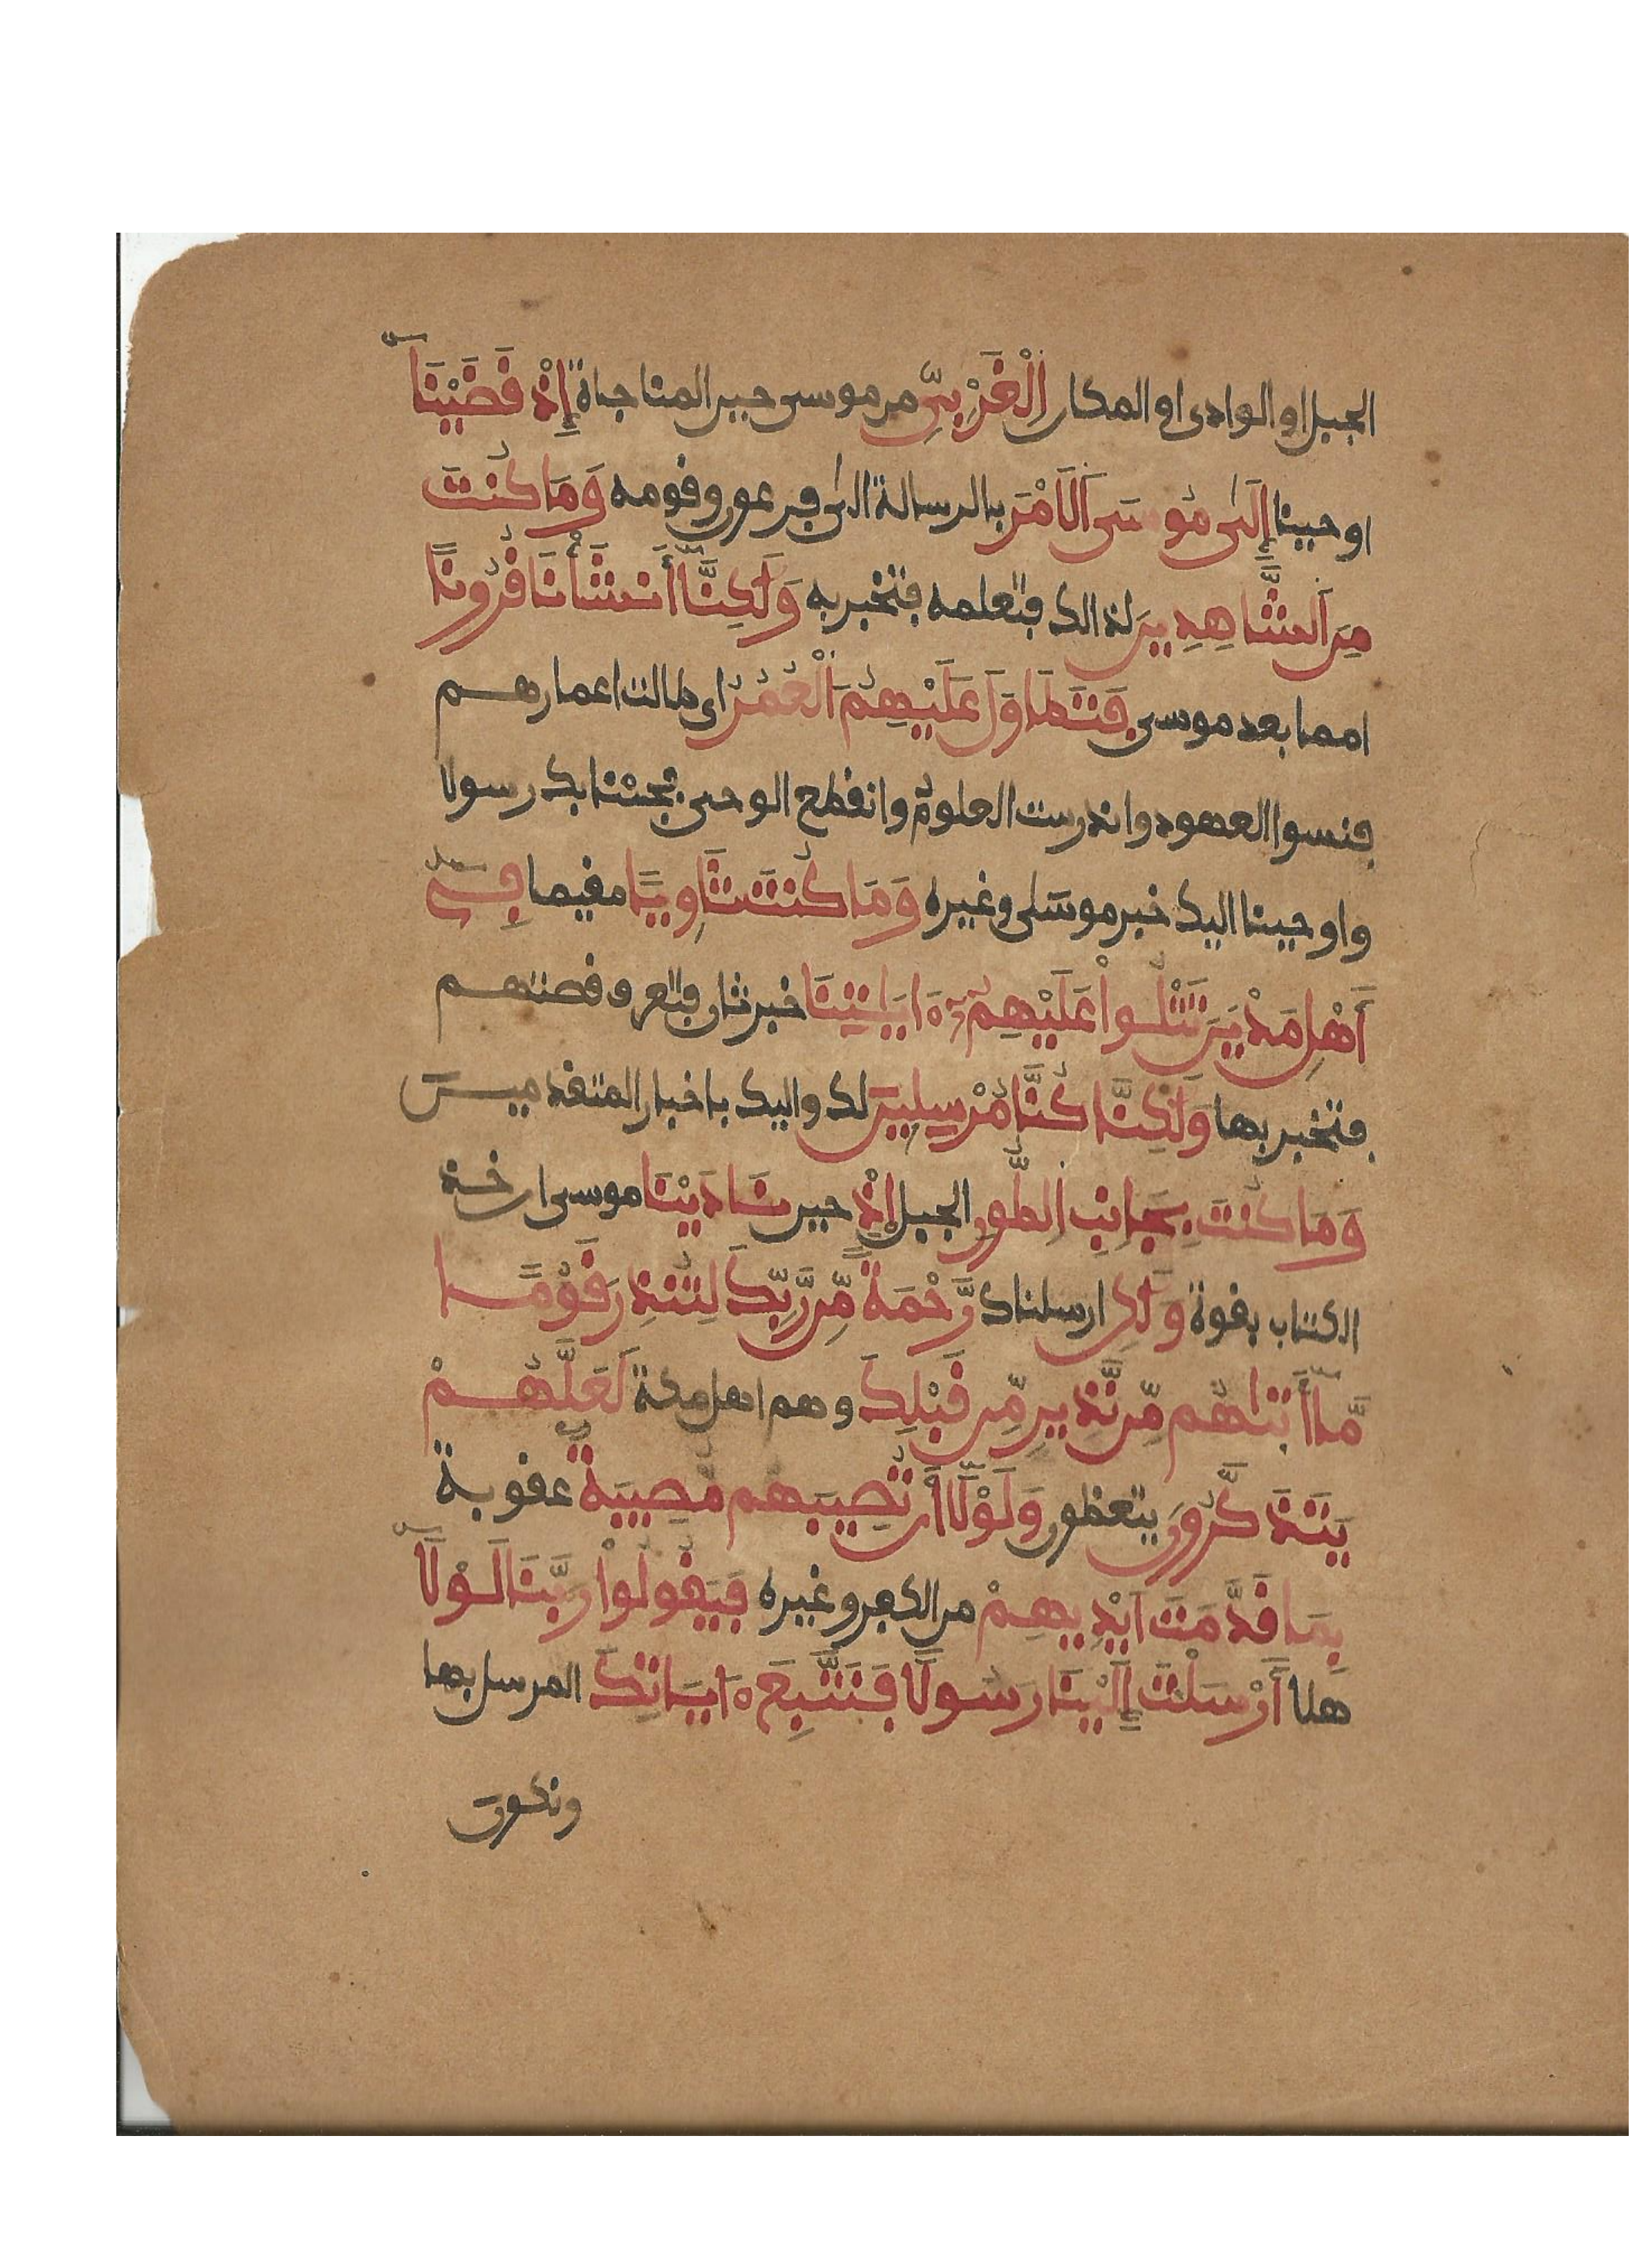 الجبل او الوادى او المكان الْغَرْبِىِّ من موسى حين المناجاة إِذْ قَضَيْنَا
اوحينا إِلَىٰ مُوسَى اَلَامْرَ بالرسالة الىٰ فرعون وقومه وَمَا كُنتَ
مِنَ اَلشَّاهِدِينَ لذالك فتعلمه فتخبر به وَلَٰكِنَّا أَنشَأْنَا قُرُوناً
امما بعد موسى فَتَطَاوَلَ عَلَيْهِمُ الْعُمُرُ اى طالت اعمارهم
فنسوا العهود واندرست العلوم وانقطع الوحى فجئنا بك رسولا
واوحينا اليك خبر موسىٰ وغيره وَمَا كُنتَ ثَاوِياً مقيما فِے
أَهْلِ مَدْيَنَ تَتْلُواْ عَلَيْهِمُۥ ءَايَٰتِنَا خبر ثان فتعرف قصتهم
فتخبر بها وَلَٰكِنَّا كُنَّا مُرْسِلِينَ لك واليك باخبار المتقدمين
وَمَا كُنتَ بِجَانِبِ اِلطُّورِ الجبل إِذْ حين نَادَيْنَا موسى ان خذ
الكتاب بقوة وَلَٰكِن ارسلناك رَّحْمَةً مِّن رَّبِّكَ لِتُنذِرَ قَوْماً
مَّا أَتَىٰهُم مِّن نَّذِيرٍ مِّن قَبْلِكَ وهم اهل مكة لَعَلَّهُمْ
يَتَذَكَّرُونَ يتعظون وَلَوْلَا أَن تُصِيبَهُم مُّصِيبَةٌ عقوبة
بِمَا قَدَّمَتَ اَيْدِيهِمْ من الكفر وغيره فَيَقُولُواْ رَبَّنَا لَوْلَا
هلا أَرْسَلْتَ إِلَيْنَا رَسُولًا فَنَتَّبِعَ ءَايَاتِكَ المرسل بها
ونكون